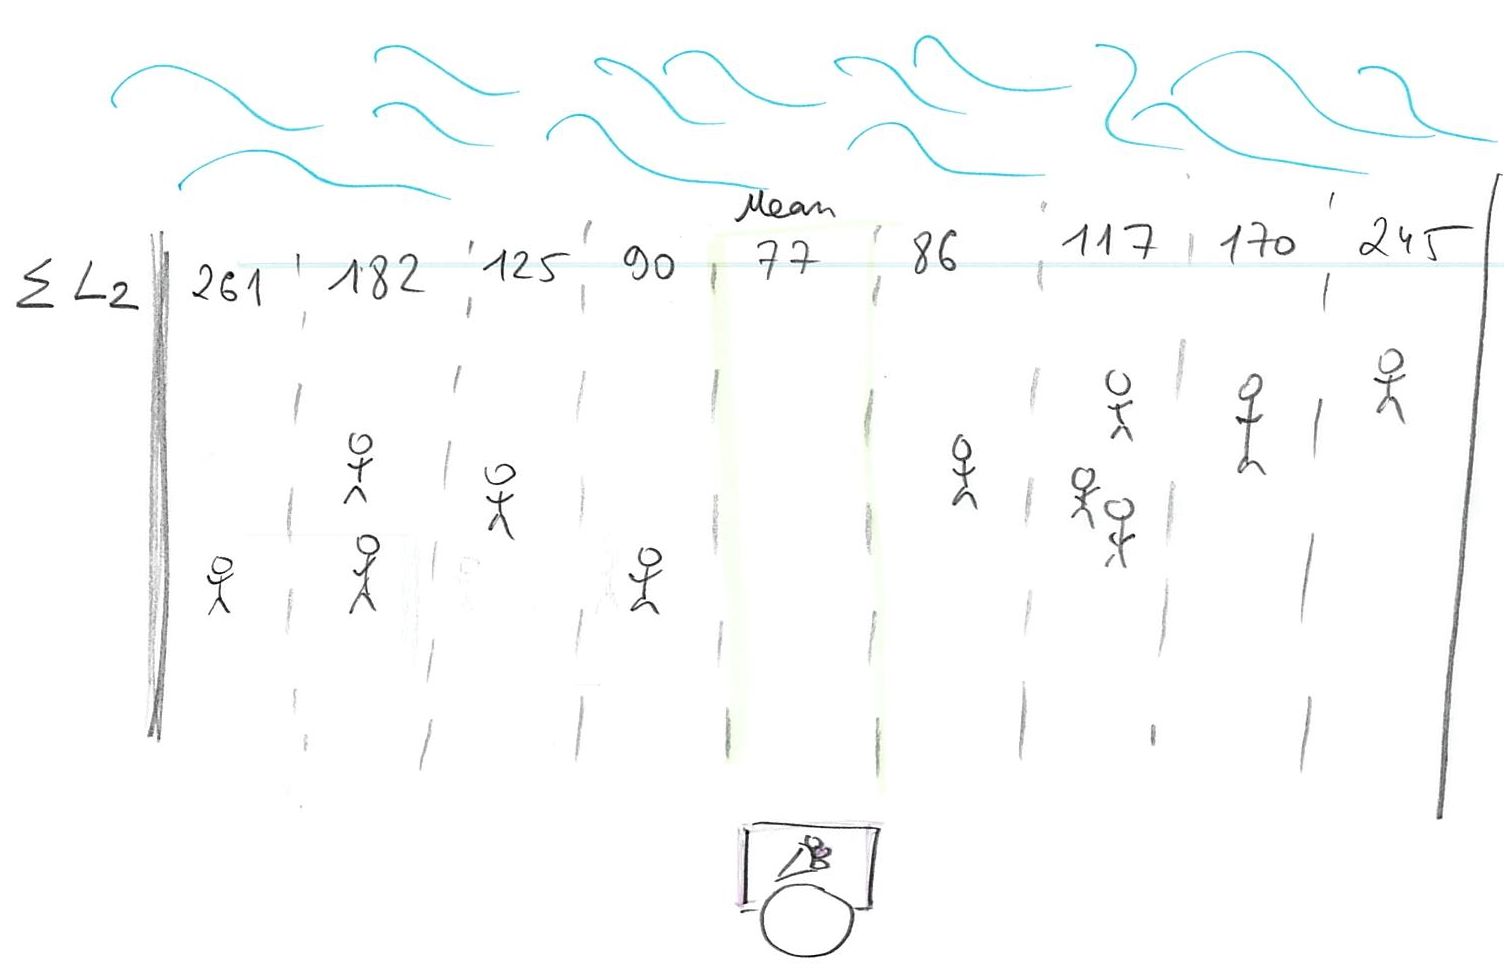 Mean
Σ L2 261 182 125 90 77 86 117 170 245